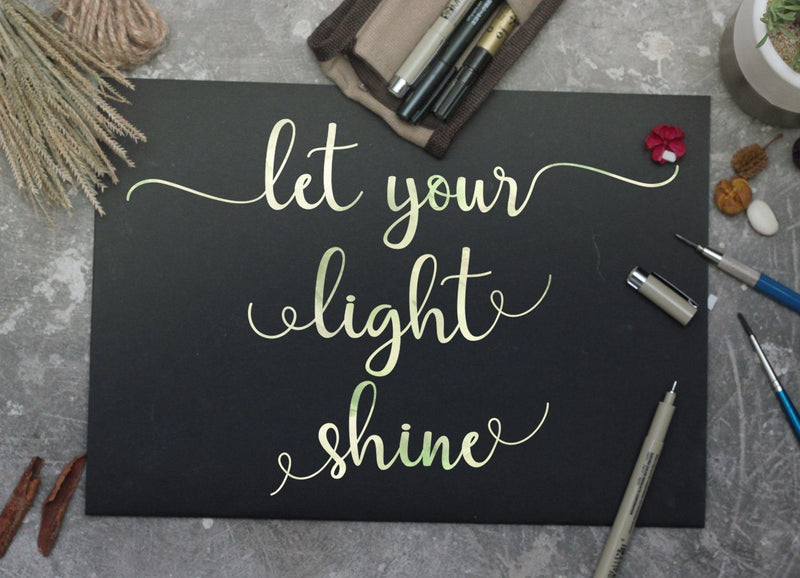 let your
light
shine